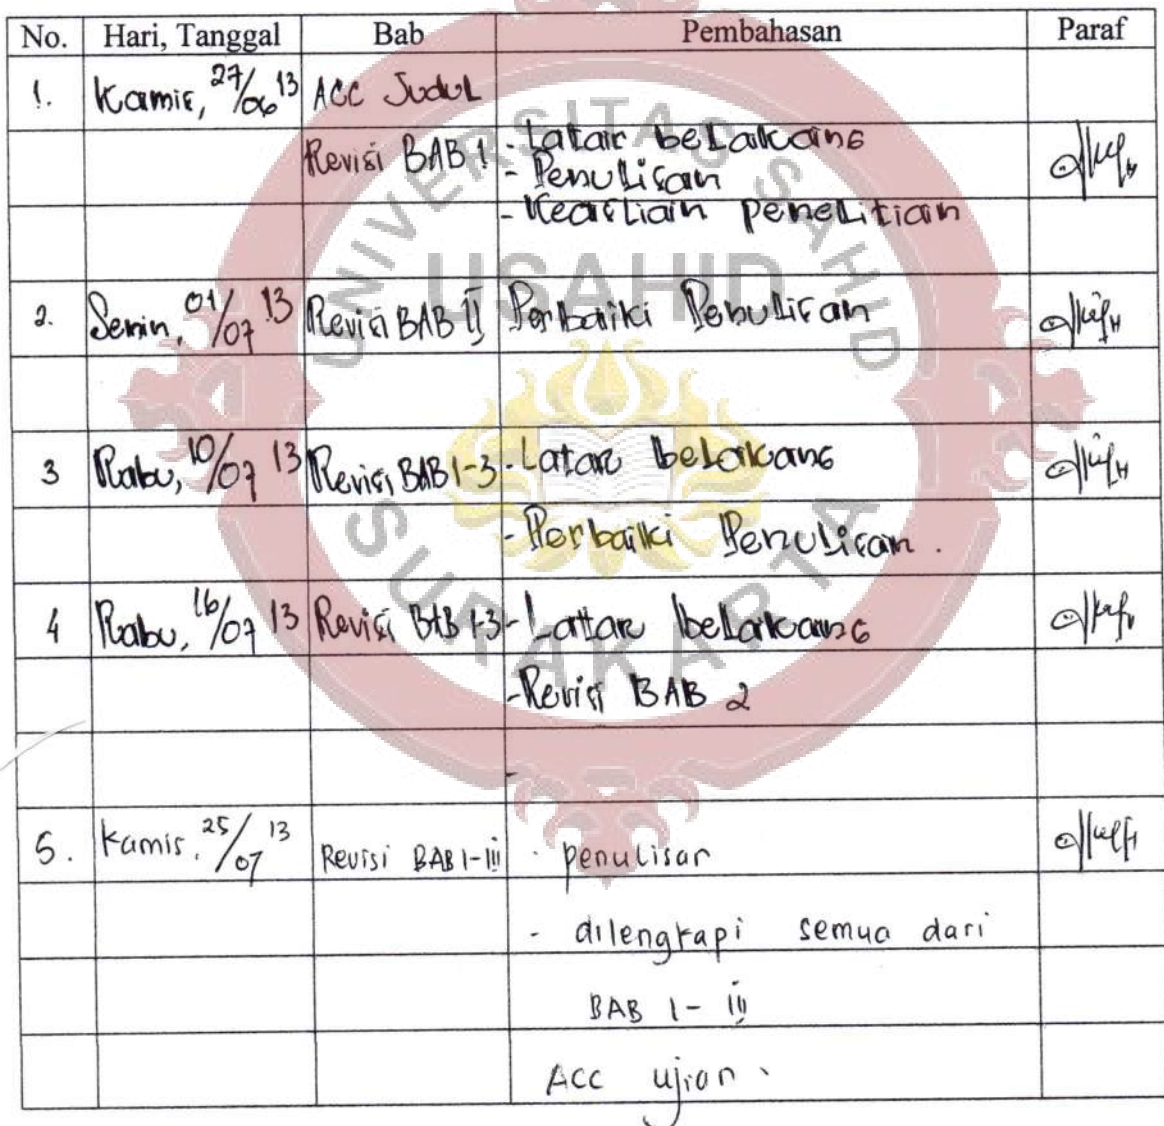 No. Hari, Tanggal Bab Pembahasan Paraf
1. Kamis, 27/06 13 ACC Judul
Revisi BAB 1 - Latar belakang
- Penulisan
- Keaslian penelitian
2. Senin, 01/07 13 Revisi BAB II Perbaiki Penulisan
3 Rabu, 10/07 13 Revisi BAB 1-3 - Latar belakang
- Perbaiki Penulisan.
4 Rabu, 16/07 13 Revisi BAB 1-3 - Latar belakang
- Revisi BAB 2
-
5. Kamis, 25/07 13 Revisi BAB I-III - penulisan
- dilengkapi semua dari
BAB I - III
ACC ujian.
UNIVERSITAS SAHID
USAHID
SURAKARTA